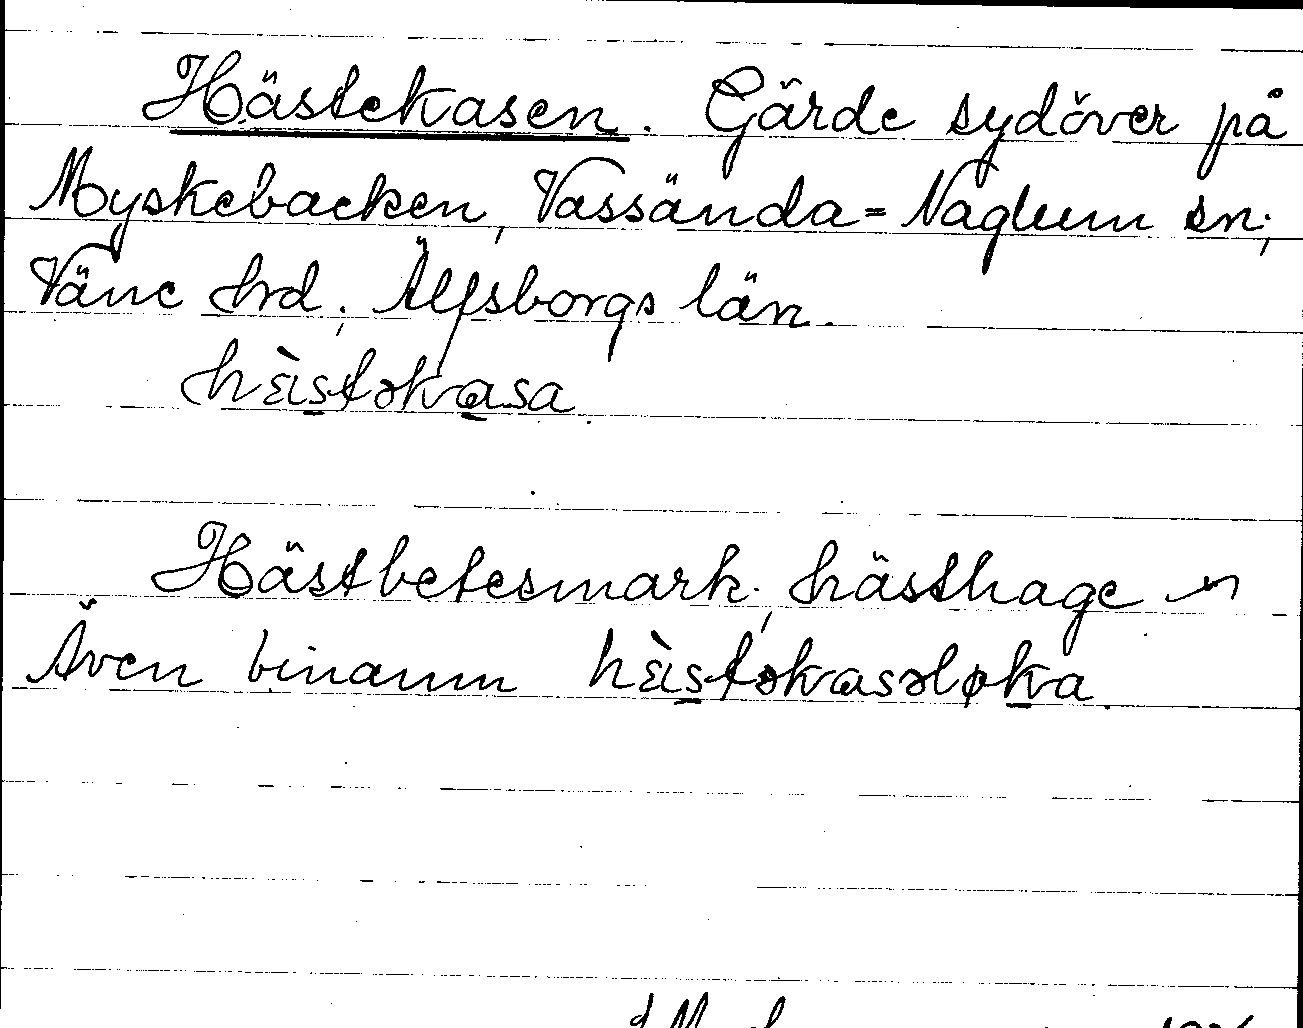 Hästekasen. Gärde sydöver på
Myskebacken, Vassända-Naglum sn;
Väne hrd; Älfsborgs län.
hὲstəkasa
Hästbetesmark; hästhage
Även binamn hὲstəkasəløka